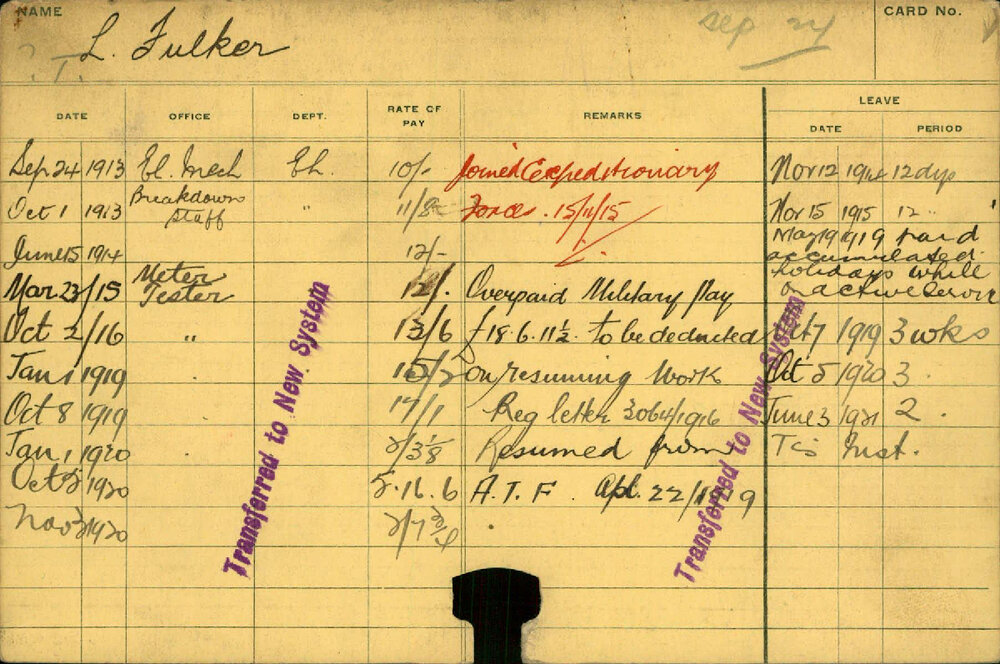 NAME
L. Fulker
Sep 24
CARD No.
DATE OFFICE DEPT. RATE OF PAY REMARKS LEAVE
DATE PERIOD
Sep 24 1913 El. Mech El. 10/- Joined Expeditionary Nov 12 1914 12 dys
Oct 1 1913 Breakdown Staff " 11/8 Force. 15/11/15 Nov 15 1915 12 "
June 15 1914 12/- May 19 1919 paid
accumulated
holidays while
on active service
Mar 23/15 Meter Tester 12/. Overpaid Military Pay
Oct 2/16 " 13/6 £18.6.11½ to be deducted Oct 7 1919 3 wks
Jan 1 1919 15/2 on resuming Work Oct 5 1920 3
Oct 8 1919 17/1 Reg letter 3064/1916 June 3 1921 2
Jan 1 1920 2/3⅛ Resumed from Inst.
Oct 5 1920 5.16.6 A.T.F. Apl. 22/1919
Nov 1920
Transferred to New System
Transferred to New System